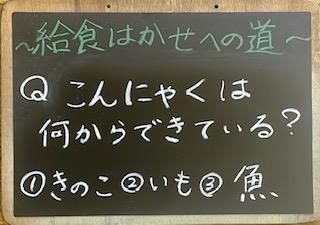 ~給食はかせへの道~
Q こんにゃくは
何からできている?
①きのこ ②いも ③ 魚